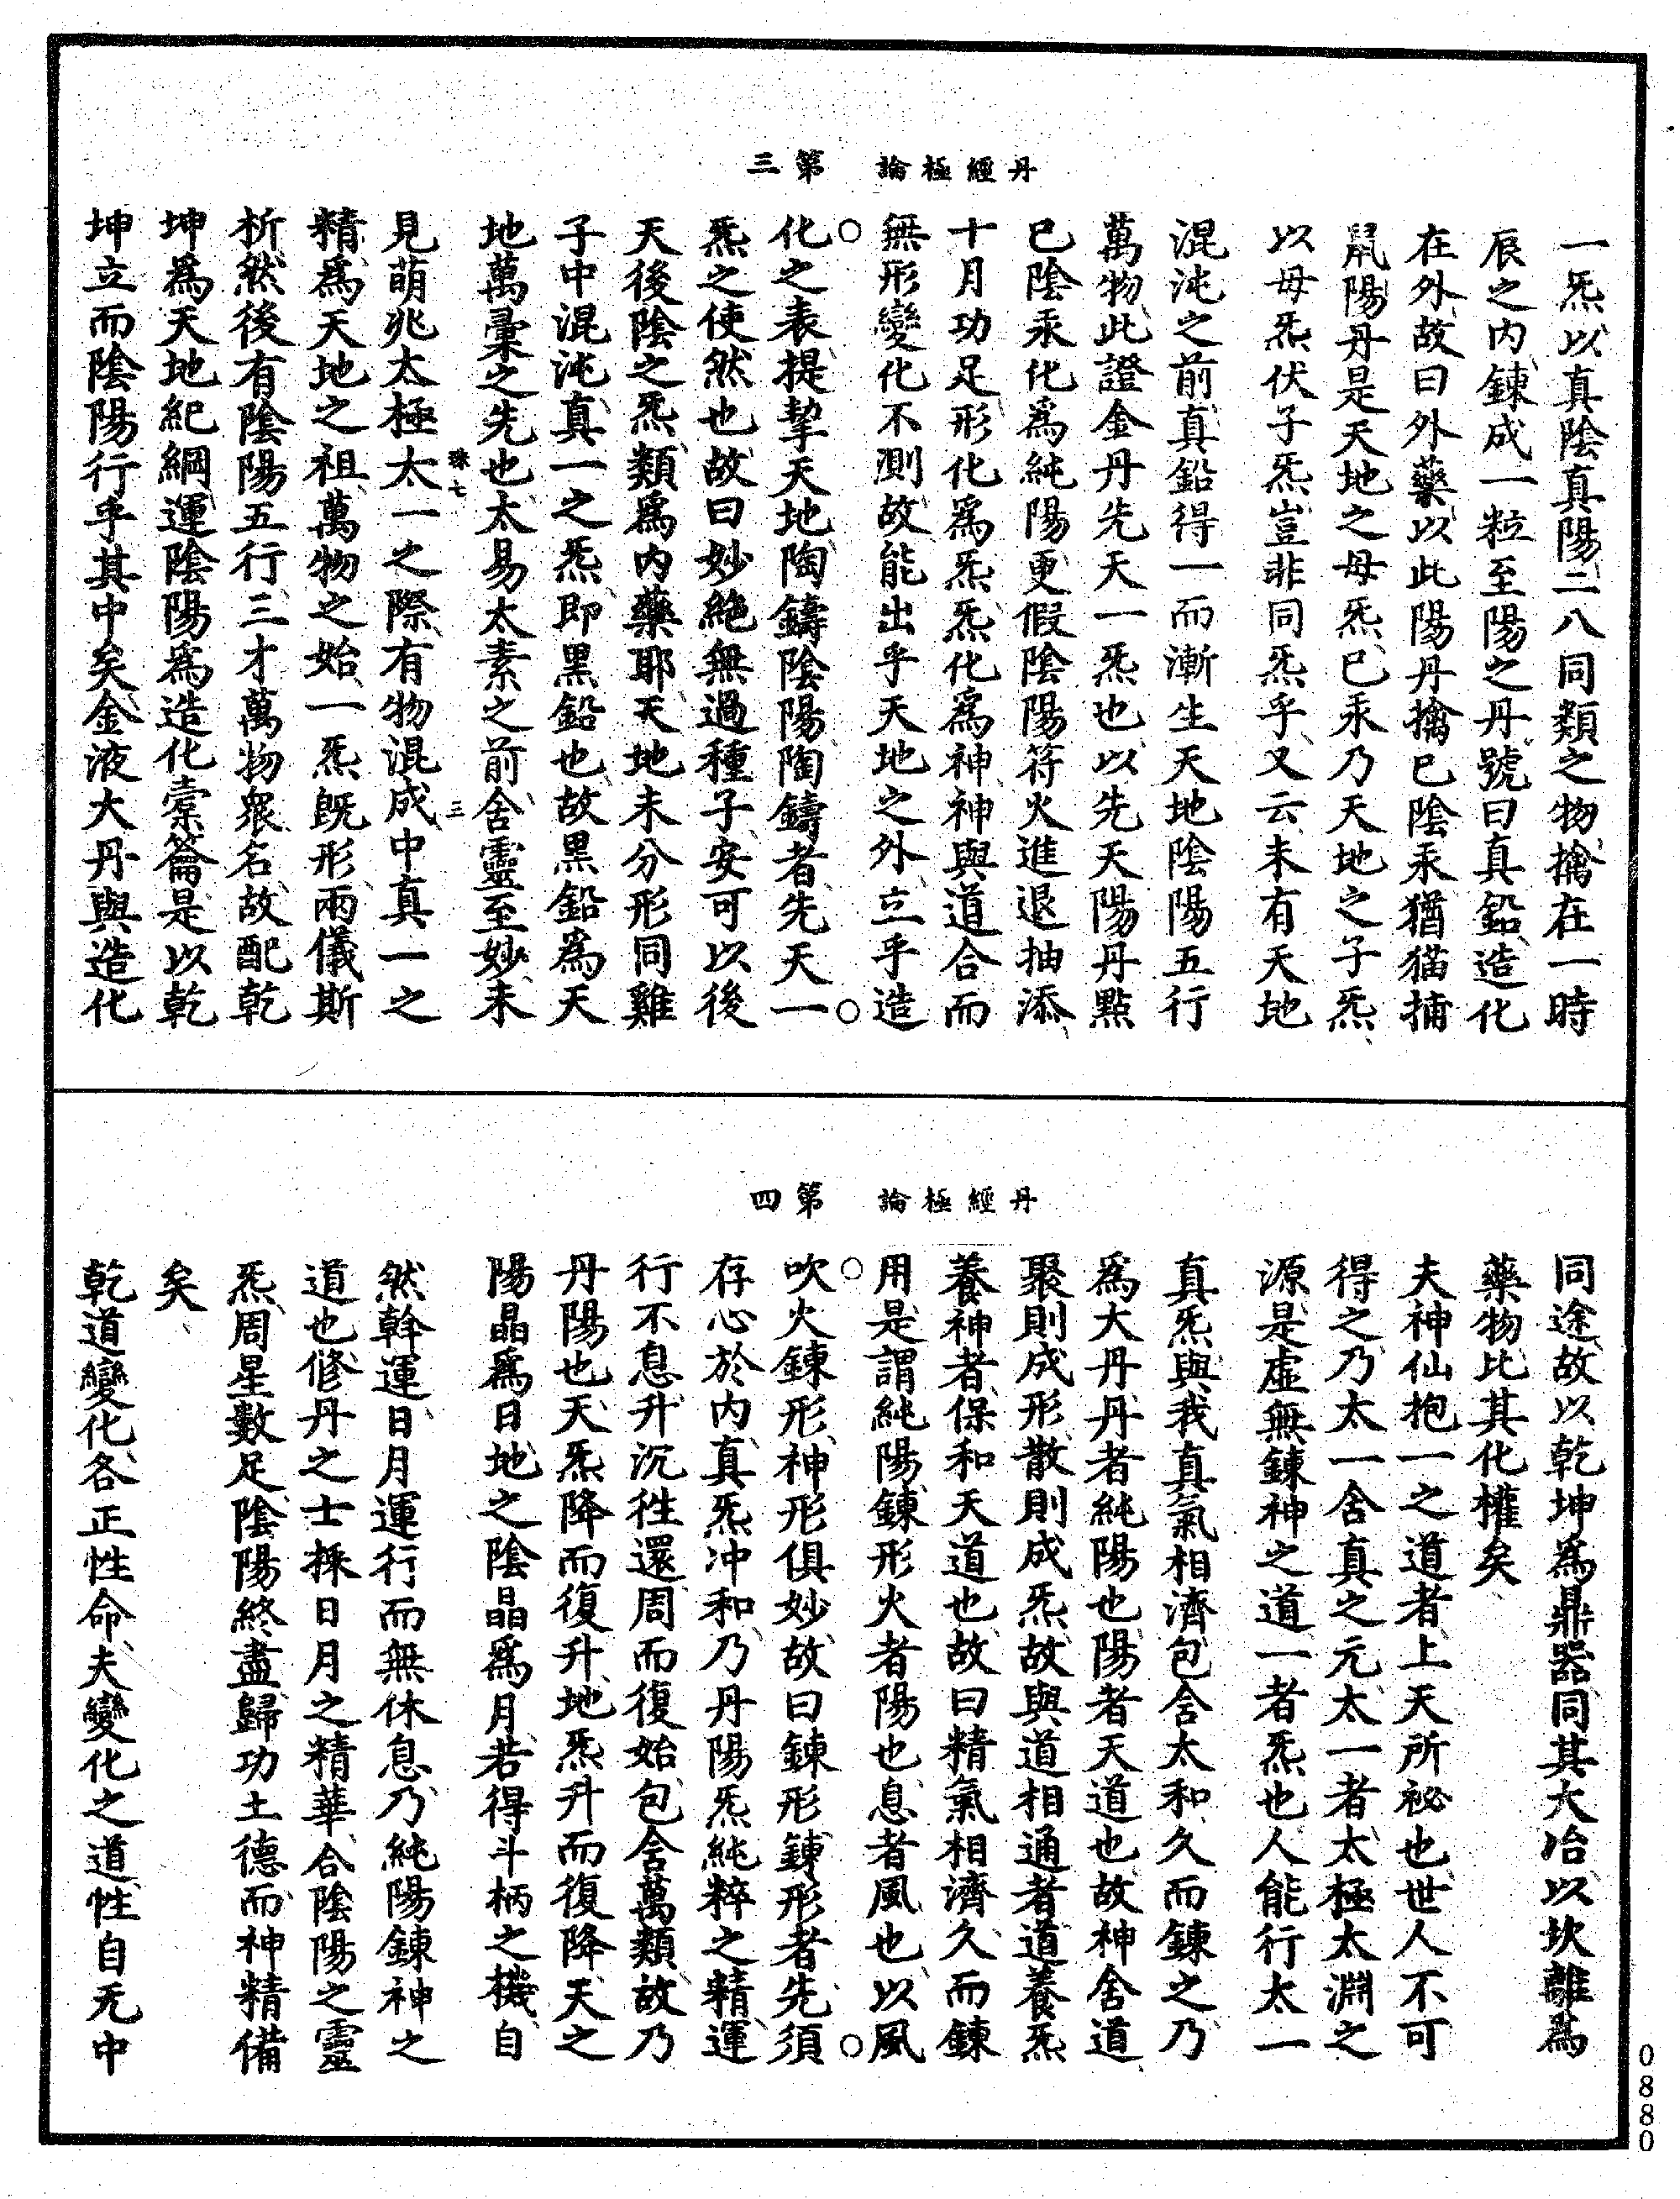 丹經極論 第三
一炁以真陰真陽二八同類之物擒在一時
辰之內鍊成一粒至陽之丹號曰真鉛造化
在外故曰外藥以此陽丹擒已陰汞猶猫捕
䑕陽丹是天地之母炁已汞乃天地之子炁
以母炁伏子炁豈非同炁乎又云未有天地
混沌之前真鉛得一而漸生天地陰陽五行
萬物此證金丹先天一炁也以先天陽丹點
已陰汞化爲純陽更假陰陽符火進退抽添
十月功足形化爲炁炁化爲神神與道合而
無形變化不測故能出乎天地之外立乎造
化之表提挈天地陶鑄陰陽陶鑄者先天一
炁之使然也故曰妙絕無過種子安可以後
天後陰之炁類爲內藥耶天地未分形同雞
子中混沌真一之炁即黑鉛也故黑鉛爲天
地萬彙之先也太易太素之前含靈至妙未
珠七 三
見萌兆太極太一之際有物混成中真一之
精爲天地之祖萬物之始一炁旣形兩儀斯
析然後有陰陽五行三才萬物衆名故配乾
坤爲天地紀綱運陰陽爲造化橐籥是以乾
坤立而陰陽行乎其中矣金液大丹與造化
丹經極論 第四
同途故以乾坤爲鼎器同其大冶以坎離爲
藥物比其化權矣
夫神仙抱一之道者上天所祕也世人不可
得之乃太一含真之元太一者太極太淵之
源是虛無鍊神之道一者炁也人能行太一
真炁與我真氣相濟包含太和久而鍊之乃
爲大丹丹者純陽也陽者天道也故神含道
聚則成形散則成炁故與道相通者道養炁
養神者保和天道也故曰精氣相濟久而鍊
用是謂純陽鍊形火者陽也息者風也以風
吹火鍊形神形俱妙故曰鍊形鍊形者先須
存心於內真炁冲和乃丹陽炁純粹之精運
行不息升沉徃還周而復始包含萬類故乃
丹陽也天炁降而復升地炁升而復降天之
陽晶爲日地之陰晶爲月若得斗柄之機自
然斡運日月運行而無休息乃純陽鍊神之
道也修丹之士採日月之精華合陰陽之靈
炁周星數足陰陽終盡歸功土德而神精備
矣
乾道變化各正性命夫變化之道性自无中
0880